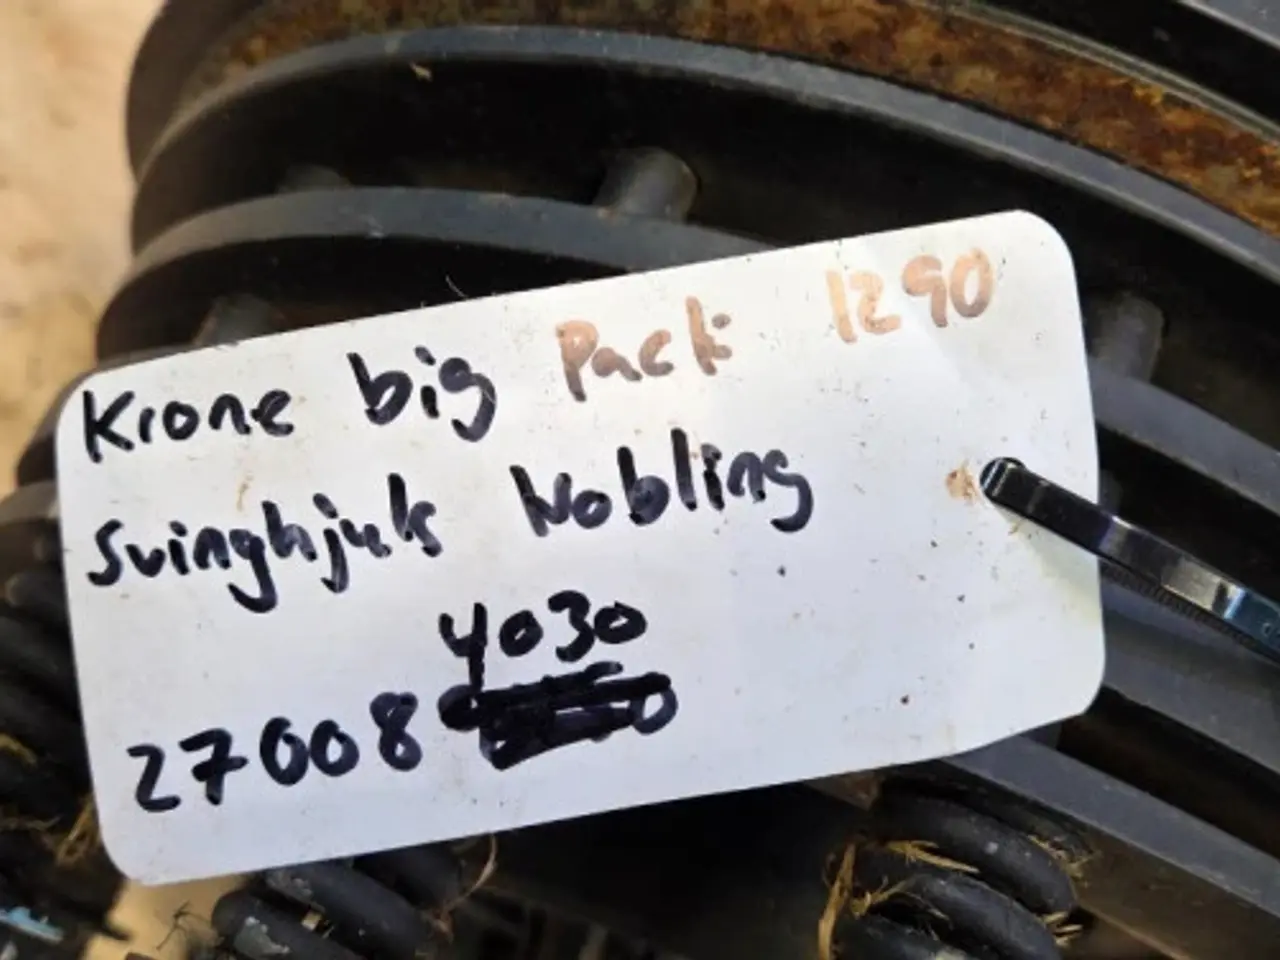 Krone big Pack 1290
Svinghjuls Kobling
4030
27008